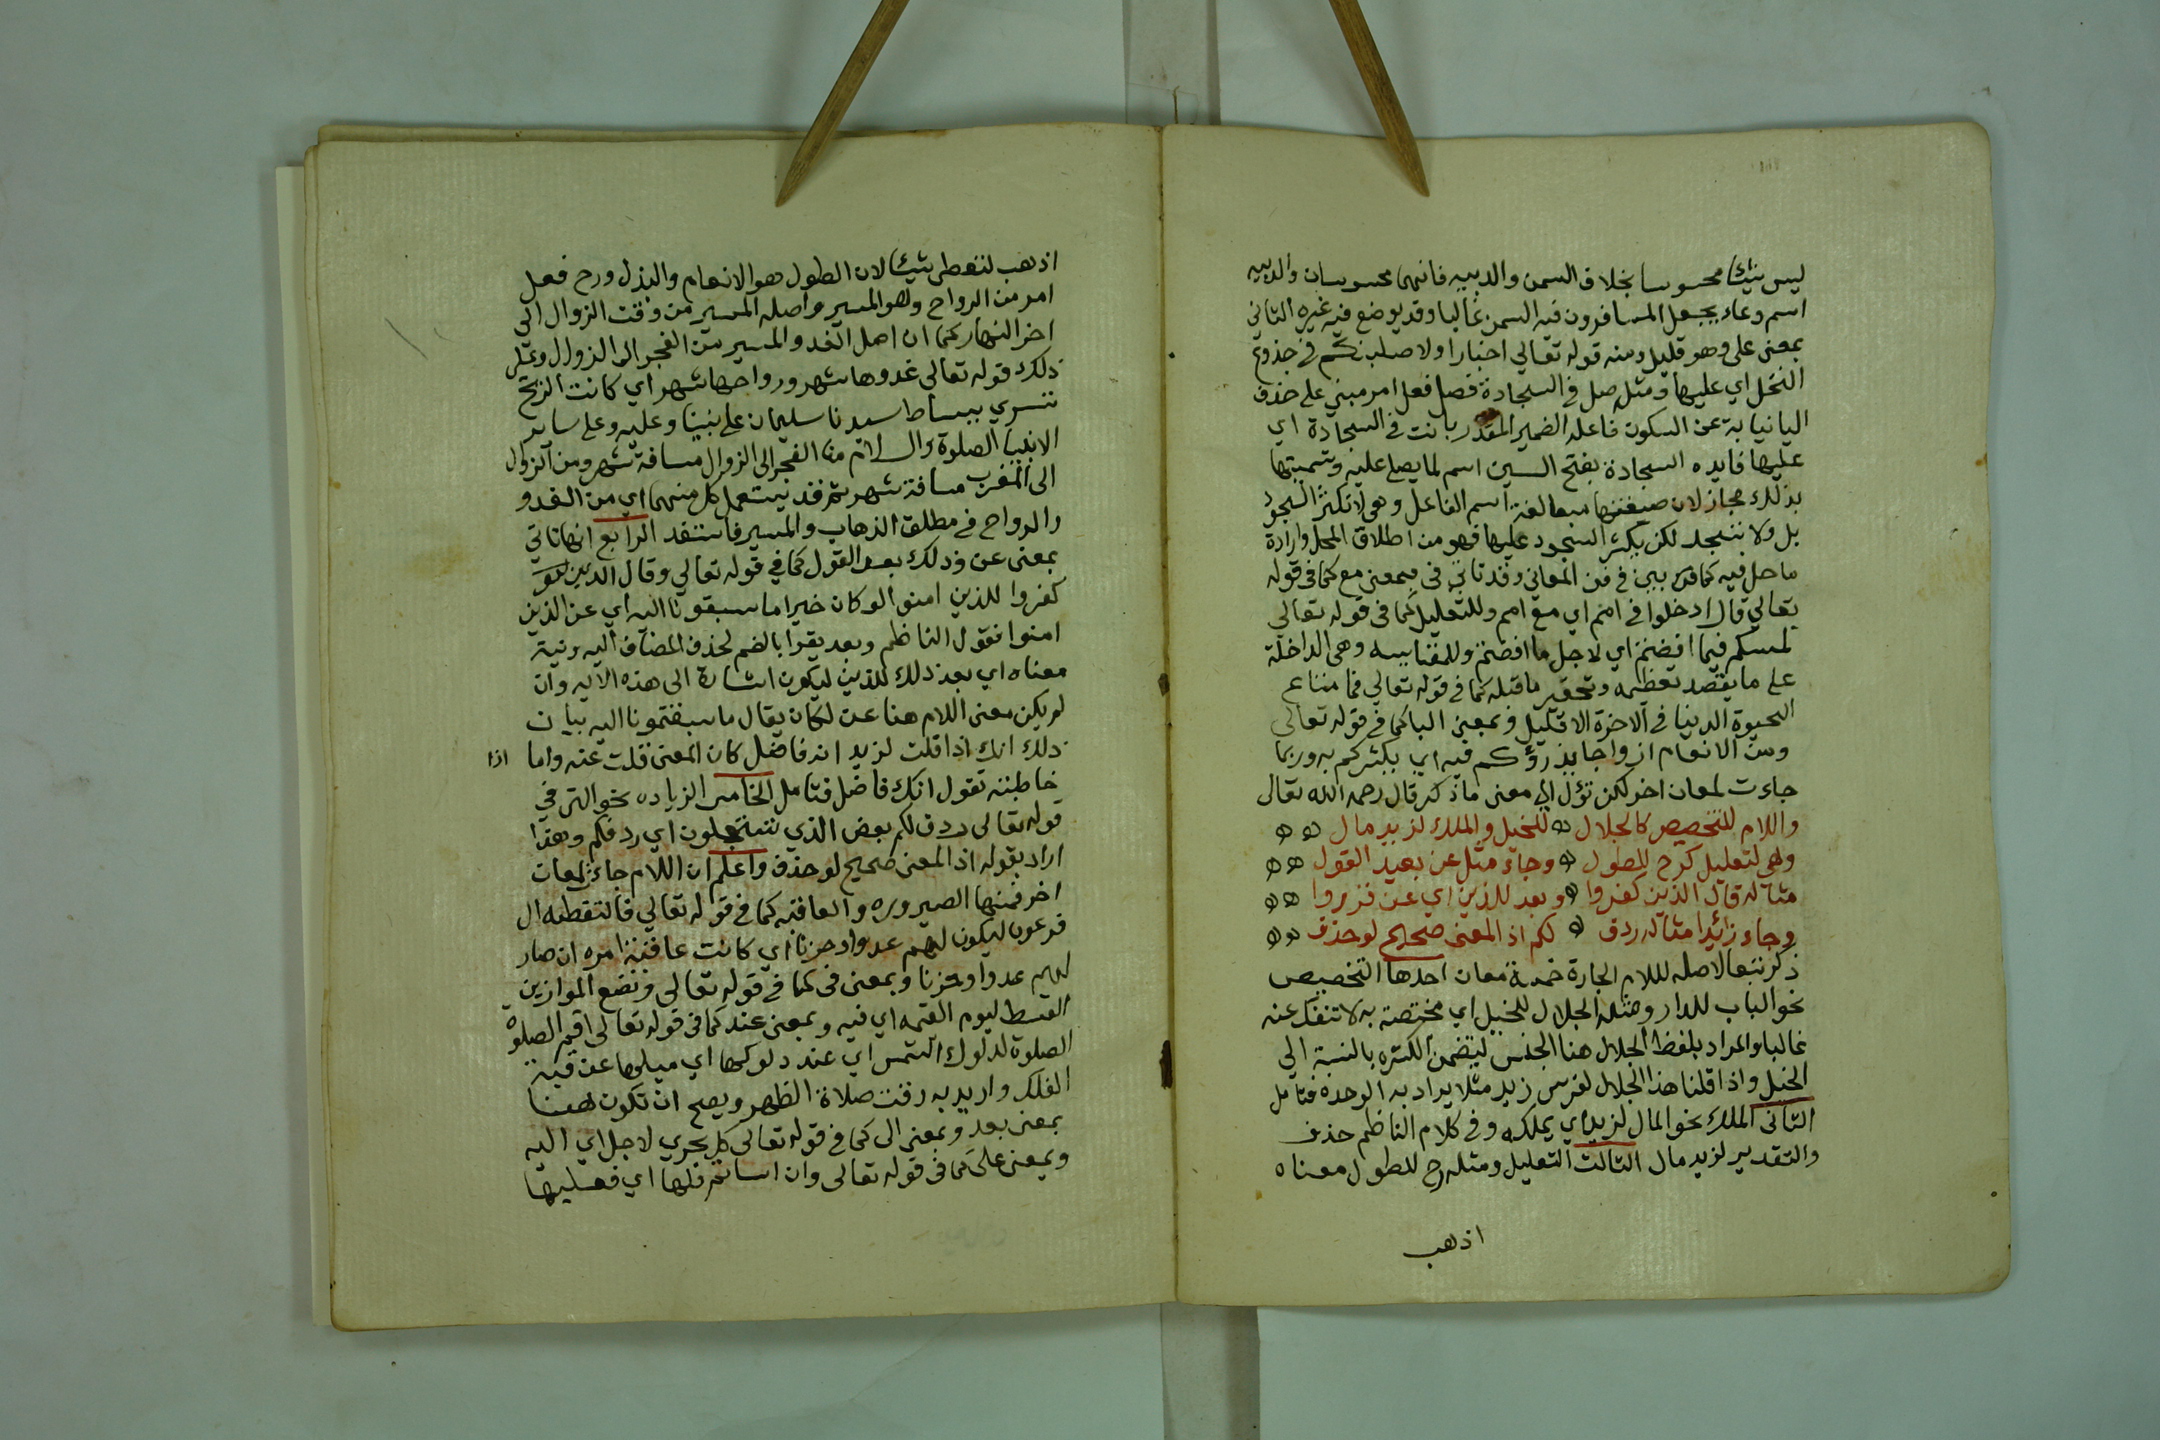 ليس شيئا محسوسا بخلاف السمن والدبيه فانهما محسوسان والدبيه
اسم وعاء يجعل المسافرون فيه السمن غالبا وقد يوضع فيه غيره الثاني
بمعنى على وهو قليل ومنه قوله تعالي اخبارا ولاصلبنكم في جذوع
النخل اي عليها ومثل صل في السجادة فصل فعل امر مبني على حذف
اليا نيابة عن السكون فاعله الضمير المقدر بانت في السجادة اي
عليها فايده السجادة بفتح السين اسم لما يصلي عليه وتسميتها
بذلك مجاز لان صيغتها مبالغة اسم الفاعل وهي لا تكثر السجود
بل ولا تسجد لكن يكثر السجود عليها فهو من اطلاق المحل وارادة
ما حل فيه كما قد بين في فن المعاني وقد تاتي في بمعنى مع كما في قوله
تعالي قال ادخلوا في امم اي مع امم وللتعليل كما في قوله تعالى
لمسكم فيما افضتم اي لاجل ما افضتم وللمقايسه وهي الداخلة
على ما يقصد تعظيمه وتحقير ما قبله كما في قوله تعالي فما متاع
الحيوة الدنيا في الاخرة الا قليل وبمعنى البا كما في قوله تعالى
ومن الانعام ازواجا يذرؤكم فيه اي يكثركم به وربما
جاءت لمعان اخر لكن تؤل الي معنى ما ذكر قال رحمه الله تعالى
واللام للتخصيص كالجلال للخيل والملك لزيد مال
وهي لتعليل كرح للطول وجاء مثل عن بعيد القول
مثاله قال الذين كفروا وبعد للذين اي عن قرروا
وجاء زائدا مثاله ردف لكم اذ المعنى صحيح لو حذف
ذكر تبعا لاصله للام الجارة خمسة معان احدها التخصيص
نحو الباب للدار ومثله الجلال للخيل اي مختصة به لا تنفك عنه
غالبا والمراد بلفظ الجلال هنا الجنس ليتضمن الكثره بالنسبة الي
الخيل واذا قلنا هذا الجلال لفرس زيد مثلا يراد به الوحده فتامل
الثاني الملك نحو المال لزيد اي يملكه وفي كلام الناظم حذف
والتقدير لزيد مال الثالث التعليل ومثله رح للطول معناه
اذهب
اذهب لتعطى شيئا لان الطول هو الانعام والبذل ورح فعل
امر من الرواح وهو المسير واصله المسير من وقت الزوال الي
اخر النهار كما ان اصل الغدو المسير من الفجر الى الزوال وعلى
ذلك قوله تعالى غدوها شهر ورواحها شهر اي كانت الريح
تسري ببساط سيدنا سليمان على نبينا وعليه وعلى ساير
الانبيا الصلوة والسلام من الفجر الى الزوال مسافة شهر ومن الزوال
الى المغرب مسافة شهر ثم قد يستعمل كل منهما اي من الغدو
والرواح في مطلق الذهاب والمسير فاستفد الرابع انها تاتي
بمعنى عن وذلك بعد القول كما في قوله تعالي وقال الذين
كفروا للذين امنوا لو كان خيرا ما سبقونا اليه اي عن الذين
امنوا فقول الناظم وبعد يقرا بالضم لحذف المضاف اليه ونية
معناه اي بعد ذلك للذين ليكون اشارة الى هذه الاية وان
لم يكن معنى اللام هنا عن لكان يقال ما سبقتمونا اليه بيان
ذلك انك اذا قلت لزيد انه فاضل كان المعنى قلت عنه واما اذا
خاطبته تقول انك فاضل فتامل الخامس الزياده نحو التي في
قوله تعالى ردف لكم بعض الذي تستعجلون اي ردفكم وهذا
اراد بقوله اذ المعنى صحيح لو حذف واعلم ان اللام جاء لمعان
اخر فمنها الصيروره والعاقبه كما في قوله تعالي فالتقطه ال
فرعون ليكون لهم عدوا وحزنا اي كانت عاقبة امره ان صار
لهم عدوا وحزنا وبمعنى في كما في قوله تعالي ونضع الموازين
القسط ليوم القيمه اي فيه وبمعنى عند كما في قوله تعالى اقم الصلوة
الصلوة لدلوك الشمس اي عند دلوكها اي ميلها عن قبة
الفلك واريد به وقت صلاة الظهر ويصح ان تكون هنا
بمعنى بعد وبمعنى الى كما في قوله تعالى كل يجري لاجل اي اليه
وبمعنى على كما في قوله تعالى وان اساتم فلها اي فعليها